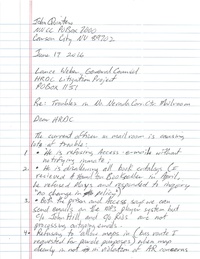 John Quintero
NNCC PO Box 7000
Carson City, NV 89702
June 17, 2016
Lance Weber, General Counsel
HRDC Litigation Project
PO Box 1151
Re: Troubles in No. Nevada Corr. Ctr Mailroom
Dear HRDC
The current officer in mailroom is causing
lots of trouble:
1 • He is refusing Access-e-mails without
notifying inmate;
2 • He is disallowing all book catalogs (I
received a Hamilton Bookseller in April,
he refused things and responded to inquiry
"no change in policy")
3 • Both the prison and Access say we can
send emails on the MP3 player system but
c/o John Hill and c/o Kirs are not
processing outgoing emails.
4 • Refusing to allow maps in (bus route I
requested for parole purposes) when map
clearly is not in violation of AR concerns